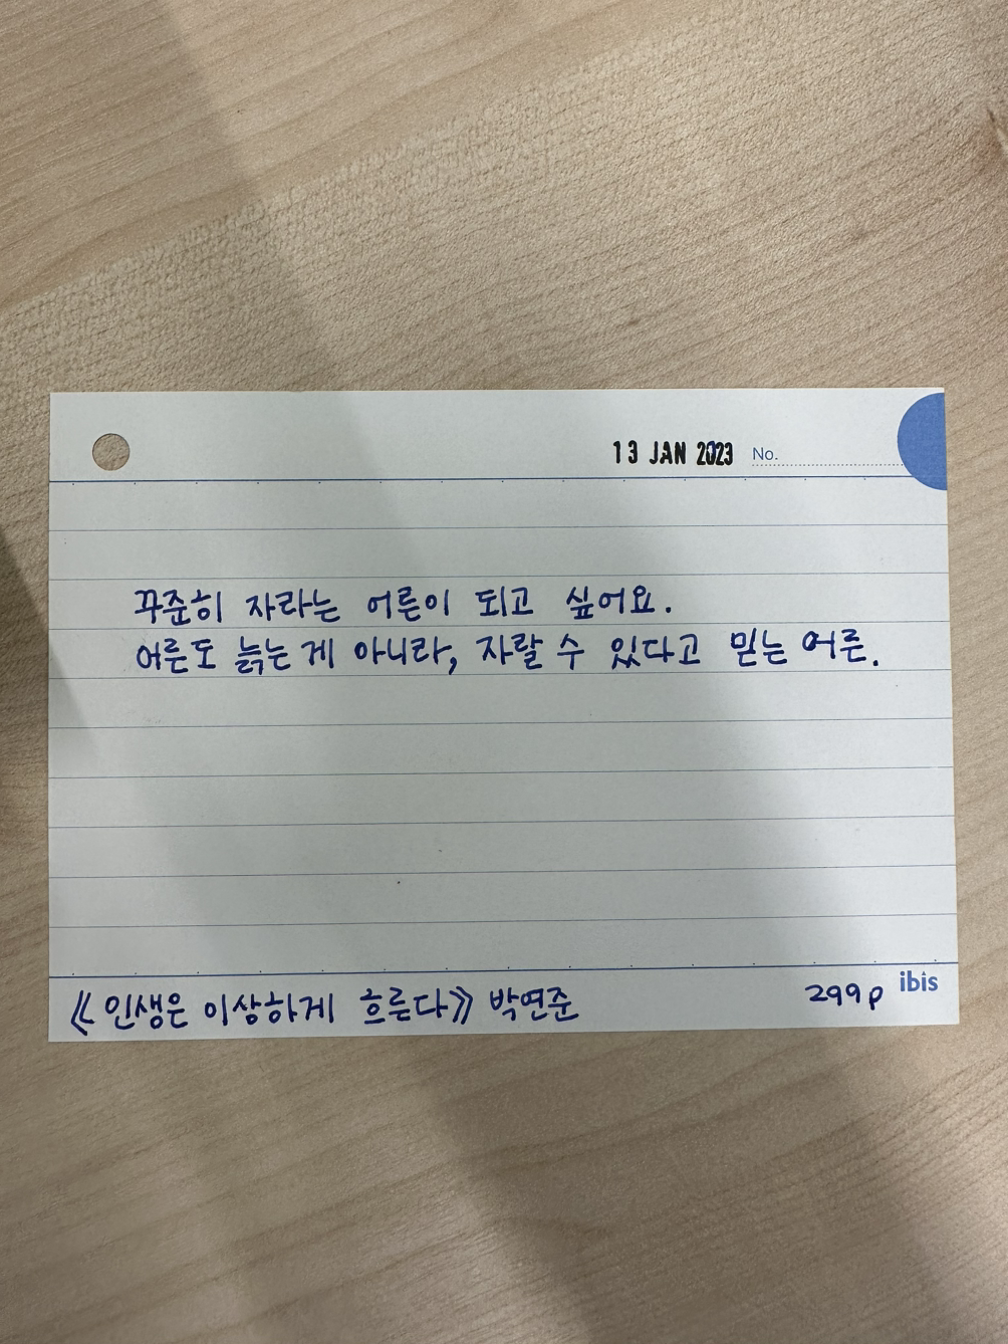 13 JAN 2023 No.
꾸준히 자라는 어른이 되고 싶어요.
어른도 늙는 게 아니라, 자랄 수 있다고 믿는 어른.
ibis
《인생은 이상하게 흐른다》 박연준 299p